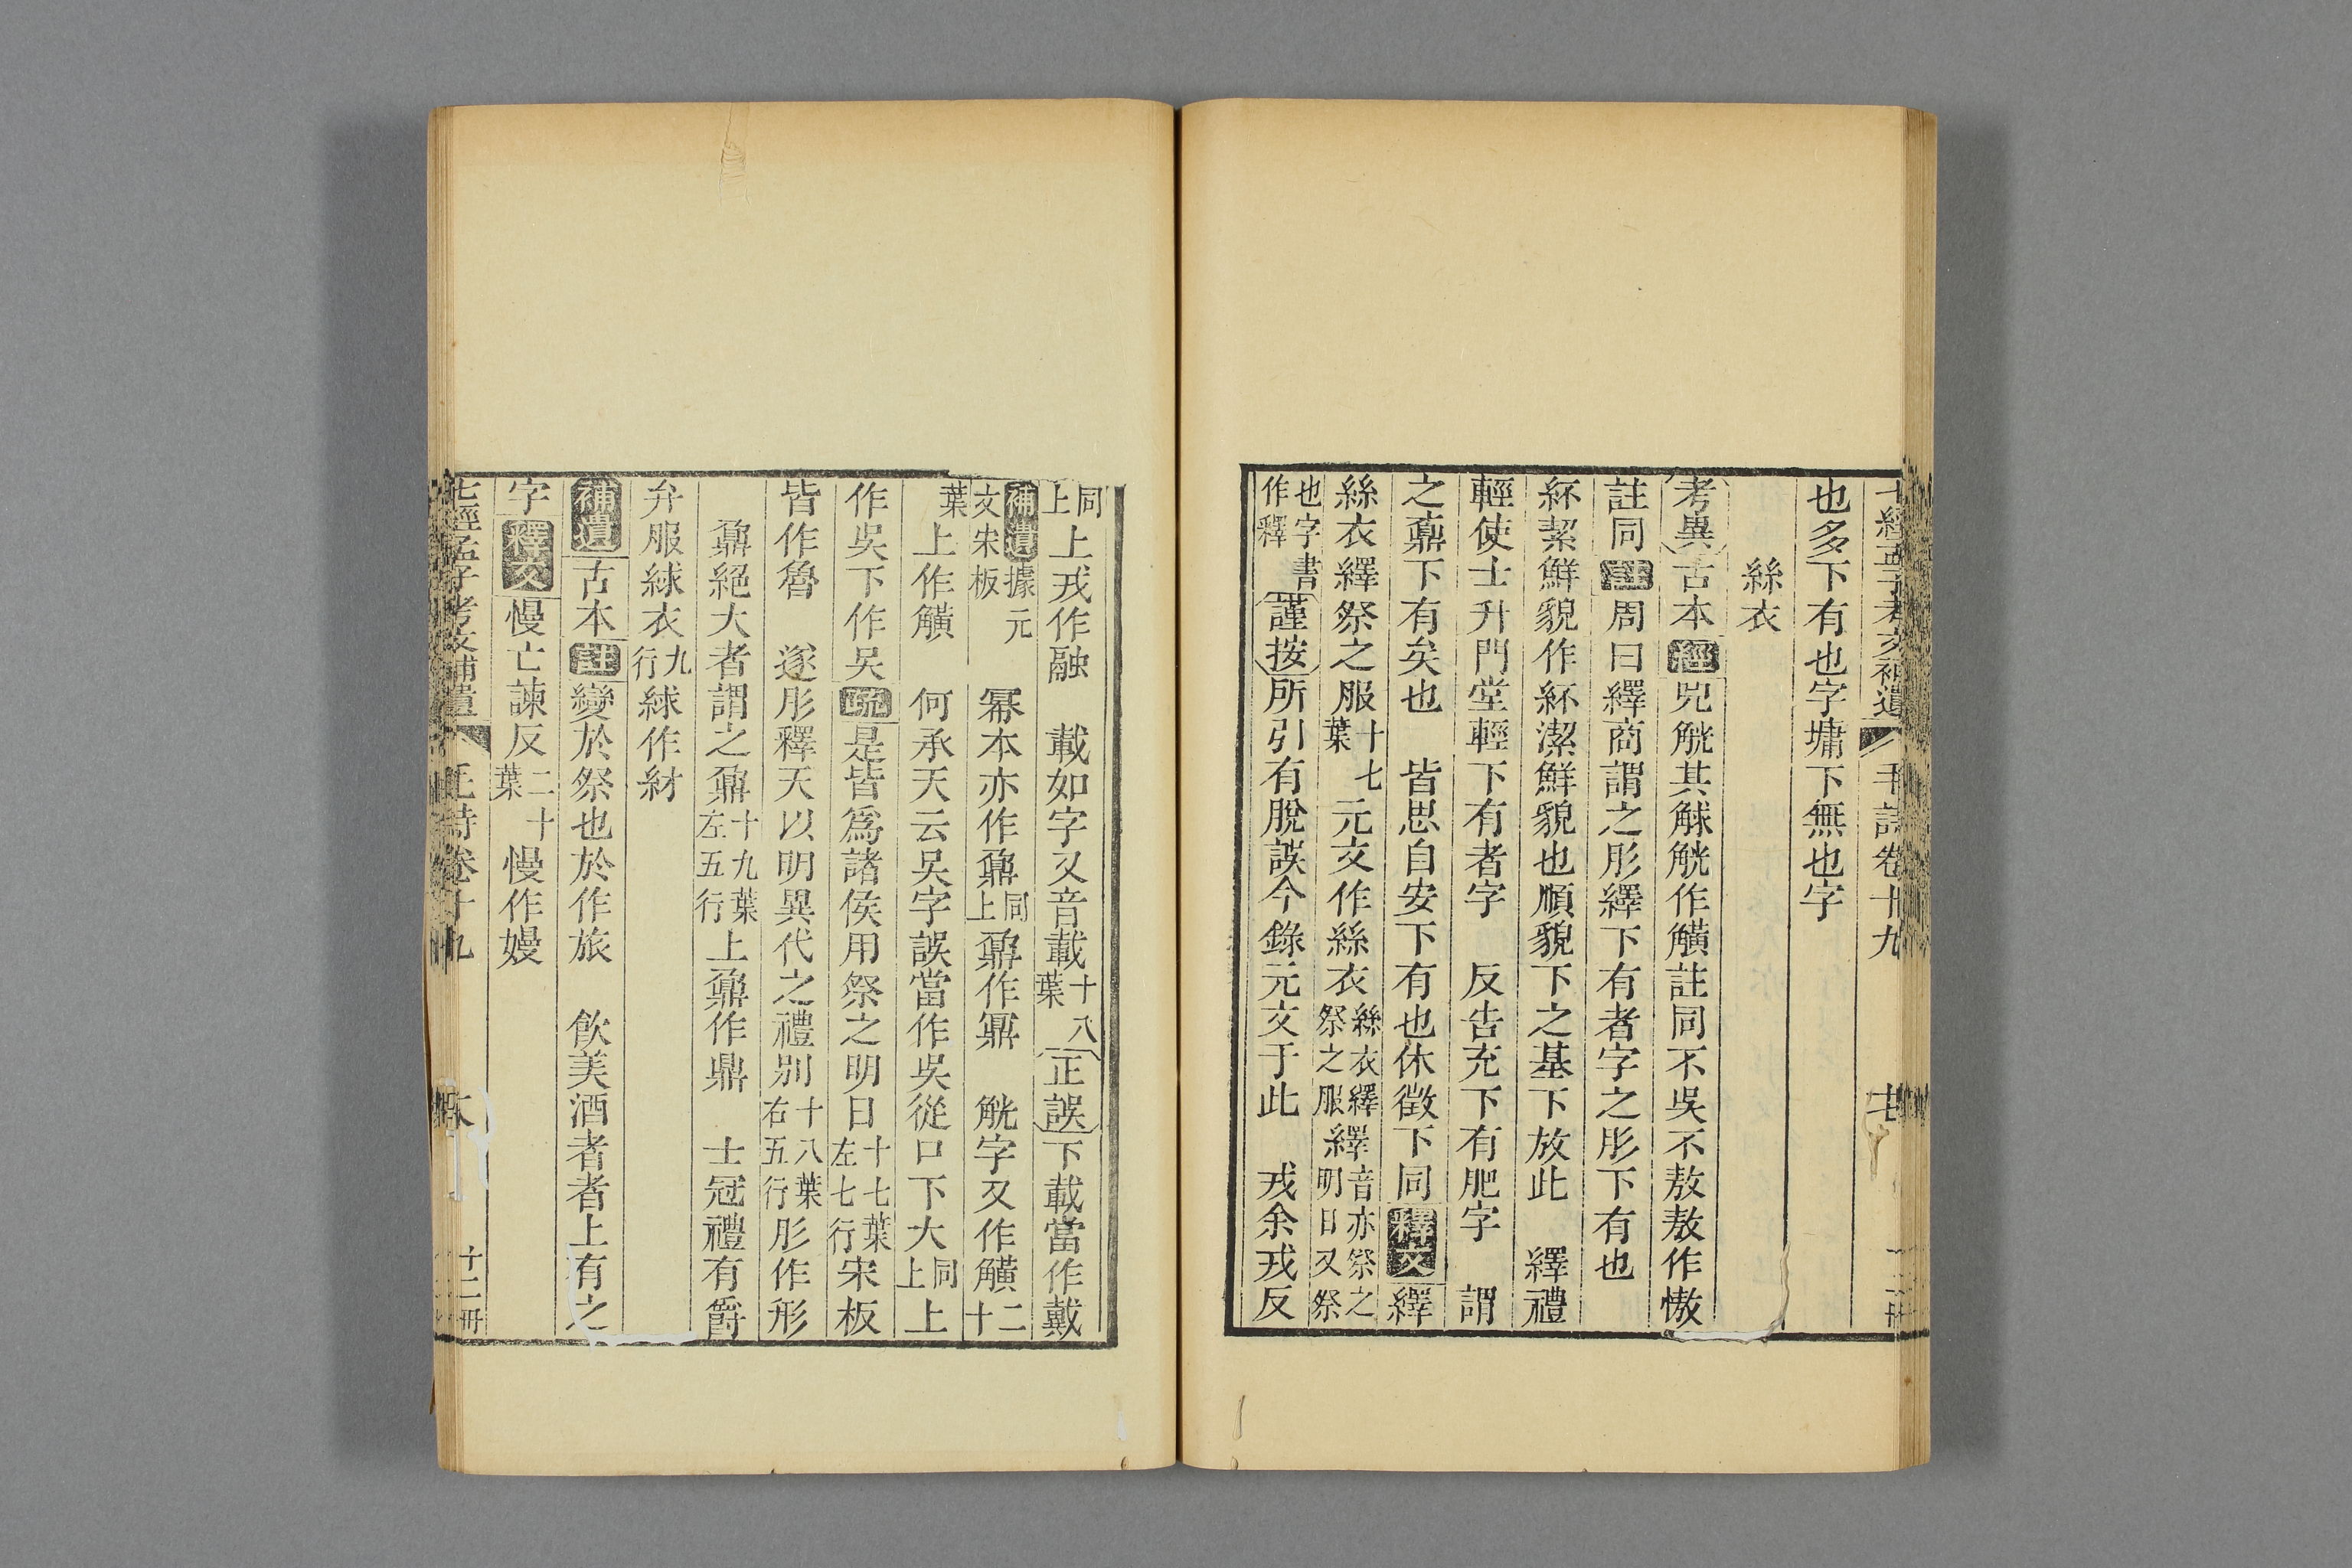 七經孟子考文補遺 毛詩卷十九
也多下有也字墉下無也字
絲衣
考異古本經兕觥其觩觥作觵註同不吳不敖敖作慠
註同註周曰繹商謂之肜繹下有者字之肜下有也
紑絜鮮貌作紑潔鮮貌也順貌下之基下放此 繹禮
輕使士升門堂輕下有者字 反告充下有肥字 謂
之鼐下有矣也 皆思自安下有也休徵下同釋文繹
絲衣繹祭之服十七葉元文作絲衣絲衣繹祭之服繹音亦祭之明日又祭
也字書作釋謹按所引有脫誤今錄元文于此 戎余戎反
同上上戎作融 載如字又音載十八葉正誤下載當作戴
補遺據元文宋板 冪本亦作鼏同上鼏作鼏 觥字又作觵二十
葉上作觵 何承天云吳字誤當作吳從口下大同上上
作吳下作吳疏是皆為諸侯用祭之明日十七葉左七行宋板
皆作魯 逐肜釋天以明異代之禮別十八葉右五行肜作形
鼐絕大者謂之鼐十九葉左五行上鼐作鼎 士冠禮有爵
弁服絿衣九行絿作紂
補遺古本註變於祭也於作旅 飲美酒者者上有之
字釋文慢亡諫反二十葉慢作嫚
七經孟子考文補遺 毛詩卷十九 十二冊